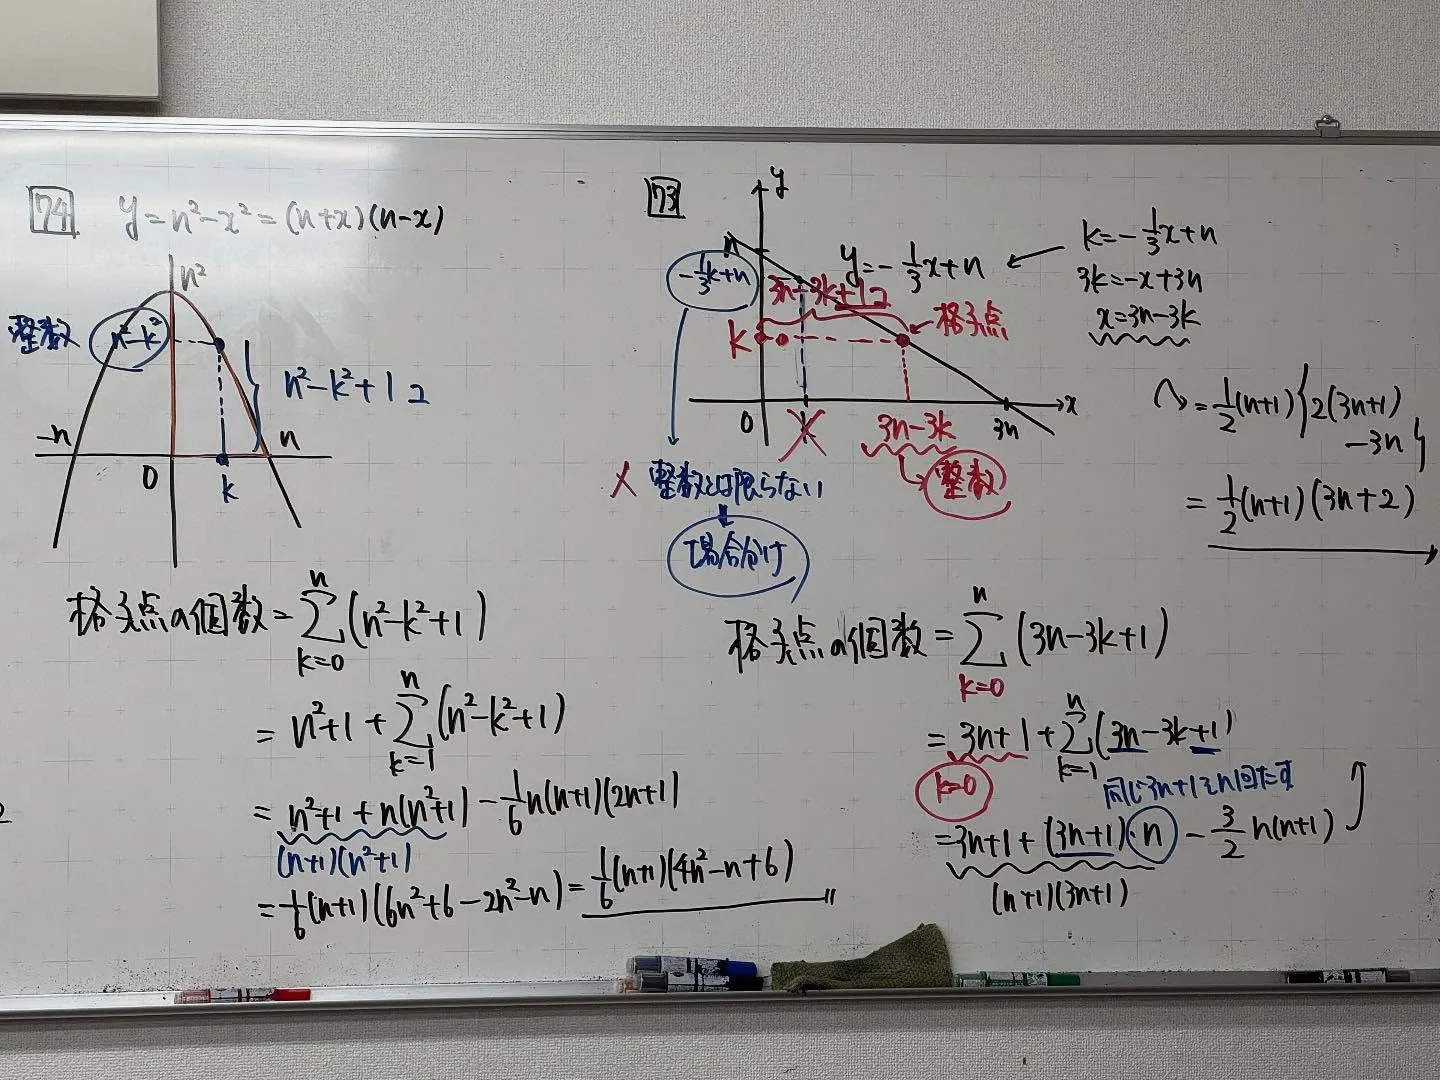 74 y=n²-x²=(n+x)(n-x)
n²
整数 n²-k²
n²-k²+1コ
-n
n
0
k
格子点の個数=∑[k=0→n](n²-k²+1)
=n²+1+∑[k=1→n](n²-k²+1)
=n²+1+n(n²+1)-1/6n(n+1)(2n+1)
(n+1)(n²+1)
=1/6(n+1)(6n²+6-2n²-n)=1/6(n+1)(4n²-n+6)
73
y
n
y=-1/3x+n
k=-1/3x+n
3k=-x+3n
x=3n-3k
-1/3k+n
3n-3k+1コ
k
格子点
0
k
3n-3k
3n
x
× 整数とは限らない
整数
場合分け
=1/2(n+1){2(3n+1)
-3n}
=1/2(n+1)(3n+2)
格子点の個数=∑[k=0→n](3n-3k+1)
=3n+1+∑[k=1→n](3n-3k+1)
k=0
同じ3n+1をn回たす
=3n+1+(3n+1)·n-3/2n(n+1)
(n+1)(3n+1)